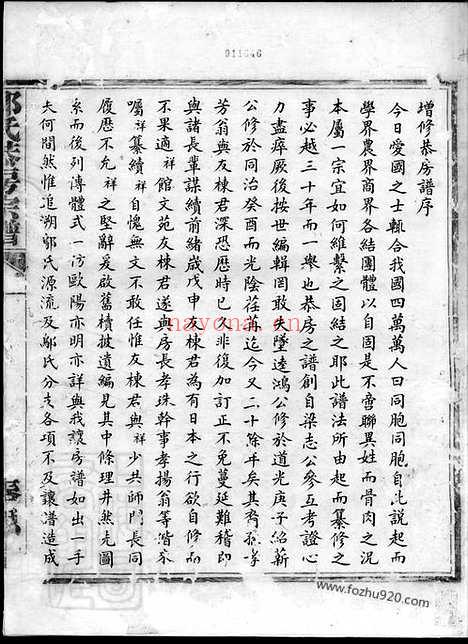 011646
增修恭房譜序
今日愛國之士輒合我國四萬萬人曰同胞同胞自此說起而
學界農界商界各結團體以自固是不啻聯異姓而骨肉之況
本屬一宗宜如何維繫之固結之耶此譜法所由起而纂修之
事必越三十年而一舉也恭房之譜創自梁志公參互考證心
力盡瘁厥後按世編輯罔敢失墜逵鴻公修於道光庚子紹蘄
公修於同治癸酉而光陰荏苒迄今又二十餘年矣其裔孫孝
芳翁與友棟君深恐歷時既久非復加訂正不免蔓延難稽即
與諸長輩謀續前緒歲戊申友棟君為有日本之行欲自修而
不果適祥館文苑友棟君遂與房長孝珠幹事孝揚翁等諧來
囑祥纂續祥自愧無文不敢任惟友棟君與祥少共師門長同
履歷不允祥之堅辭爰啟舊積披遺編見其中條理井然先圖
系而後列傳體式一訪歐陽亦明亦詳與我讓房譜如出一手
夫何間然惟追溯鄔氏源流及鄔氏分支各項不及讓譜造成
nayona.cn
www.fozhu920.com